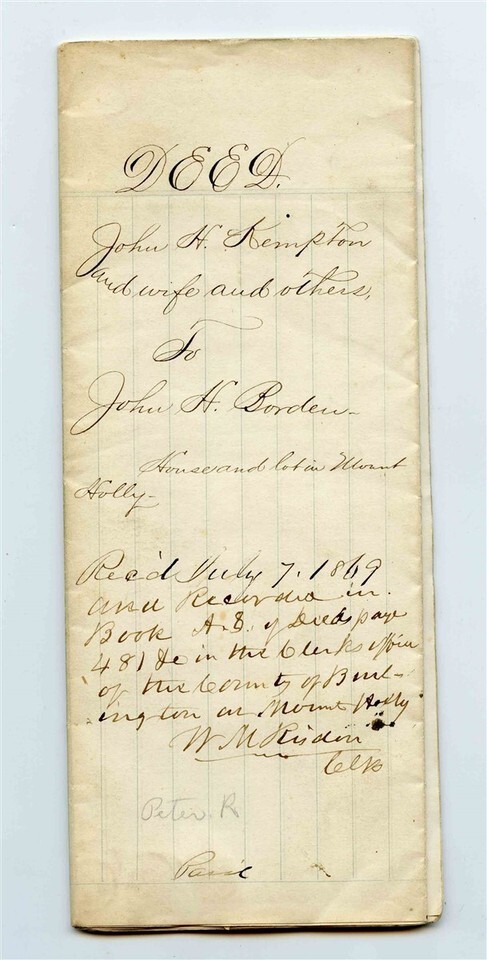 DEED.
John H. Kempton
and wife and others,
To
John H. Borden
House and lot in Mount
Holly
Rec'd July 7. 1869
and Recorded in
Book A. 8. of Deeds page
481 &c in the Clerks office
of the County of Burl-
ington at Mount Holly
W M Risdon
Clk
Peter R
Paid